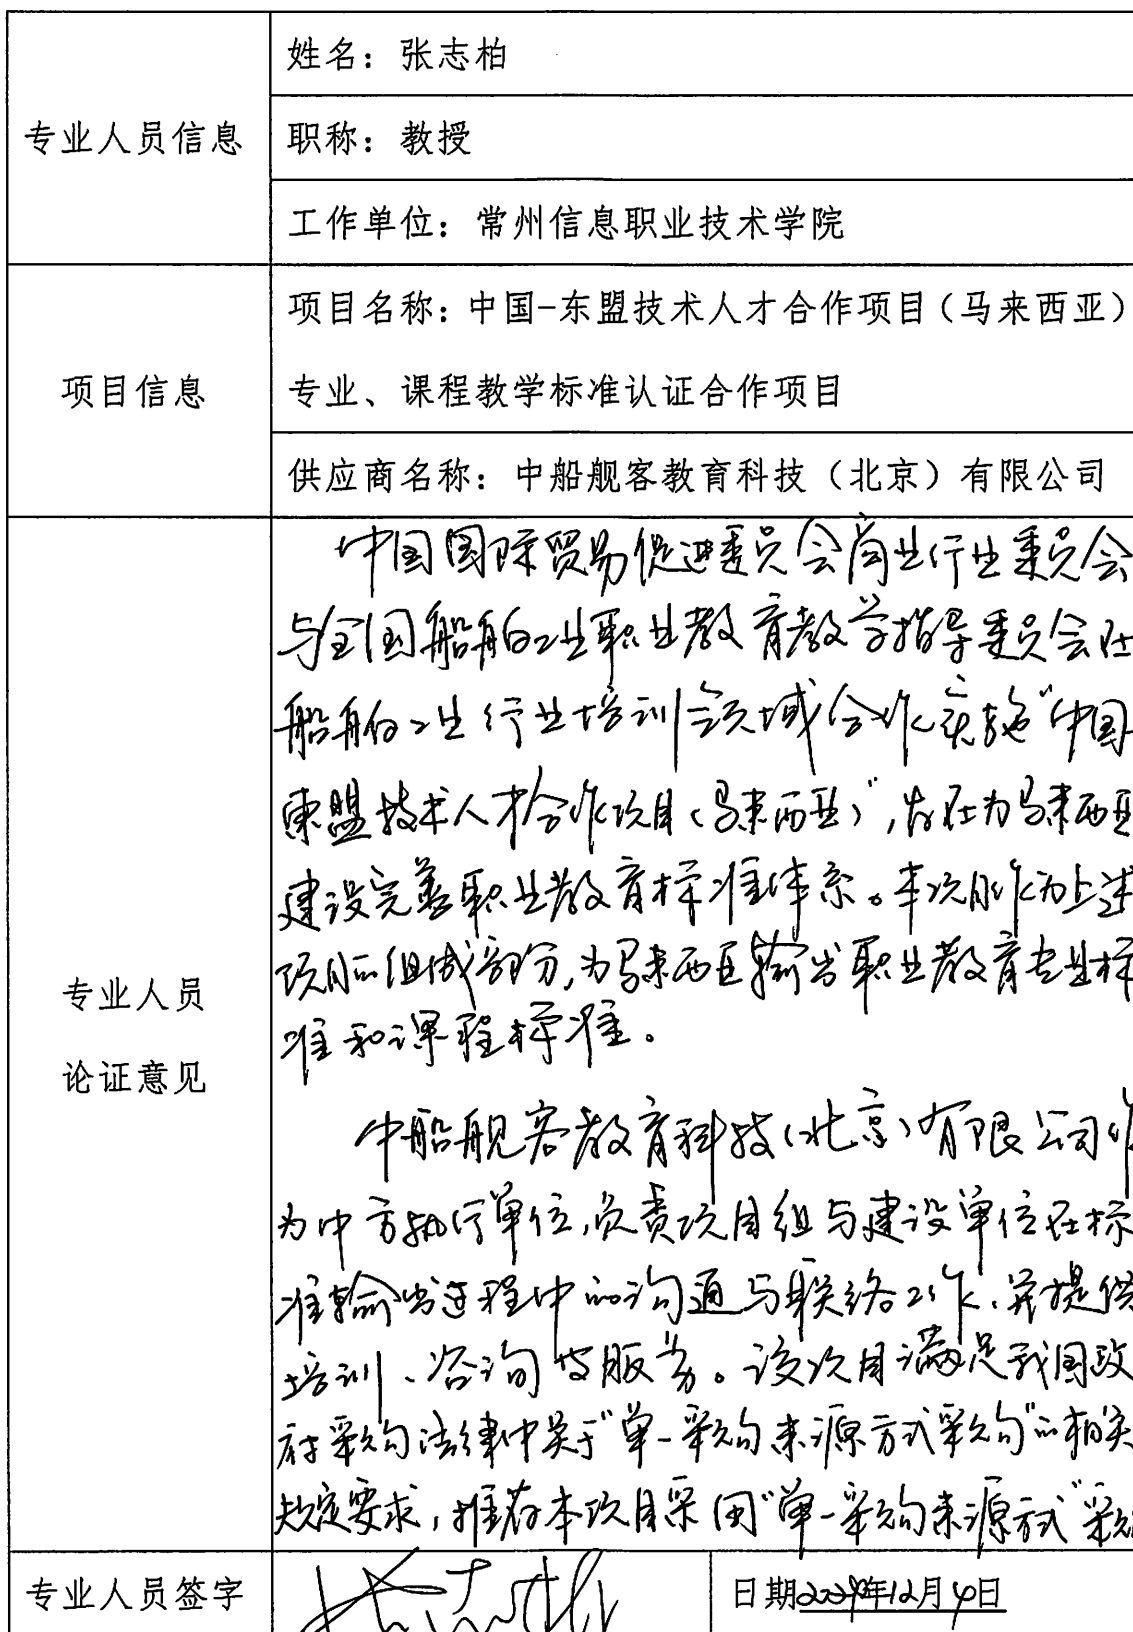 专业人员信息
姓名：张志柏
职称：教授
工作单位：常州信息职业技术学院
项目信息
项目名称：中国-东盟技术人才合作项目（马来西亚）
专业、课程教学标准认证合作项目
供应商名称：中船舰客教育科技（北京）有限公司
专业人员
论证意见
中国国际贸易促进委员会商业行业委员会
与全国船舶工业职业教育教学指导委员会在
船舶工业行业培训领域合作实施“中国
东盟技术人才合作项目（马来西亚）”，旨在为马来西亚
建设完善职业教育标准体系。本项目作为上述
项目的组成部分，为马来西亚输出职业教育专业标
准和课程标准。
中船舰客教育科技（北京）有限公司作
为中方执行单位，负责项目组与建设单位在标
准输出过程中的沟通与联络工作，并提供
培训、咨询等服务。该项目满足我国政
府采购法律中关于“单一采购来源方式采购”的相关
规定要求，推荐本项目采用“单一采购来源方式”采购
专业人员签字
张志柏
日期2024年12月4日